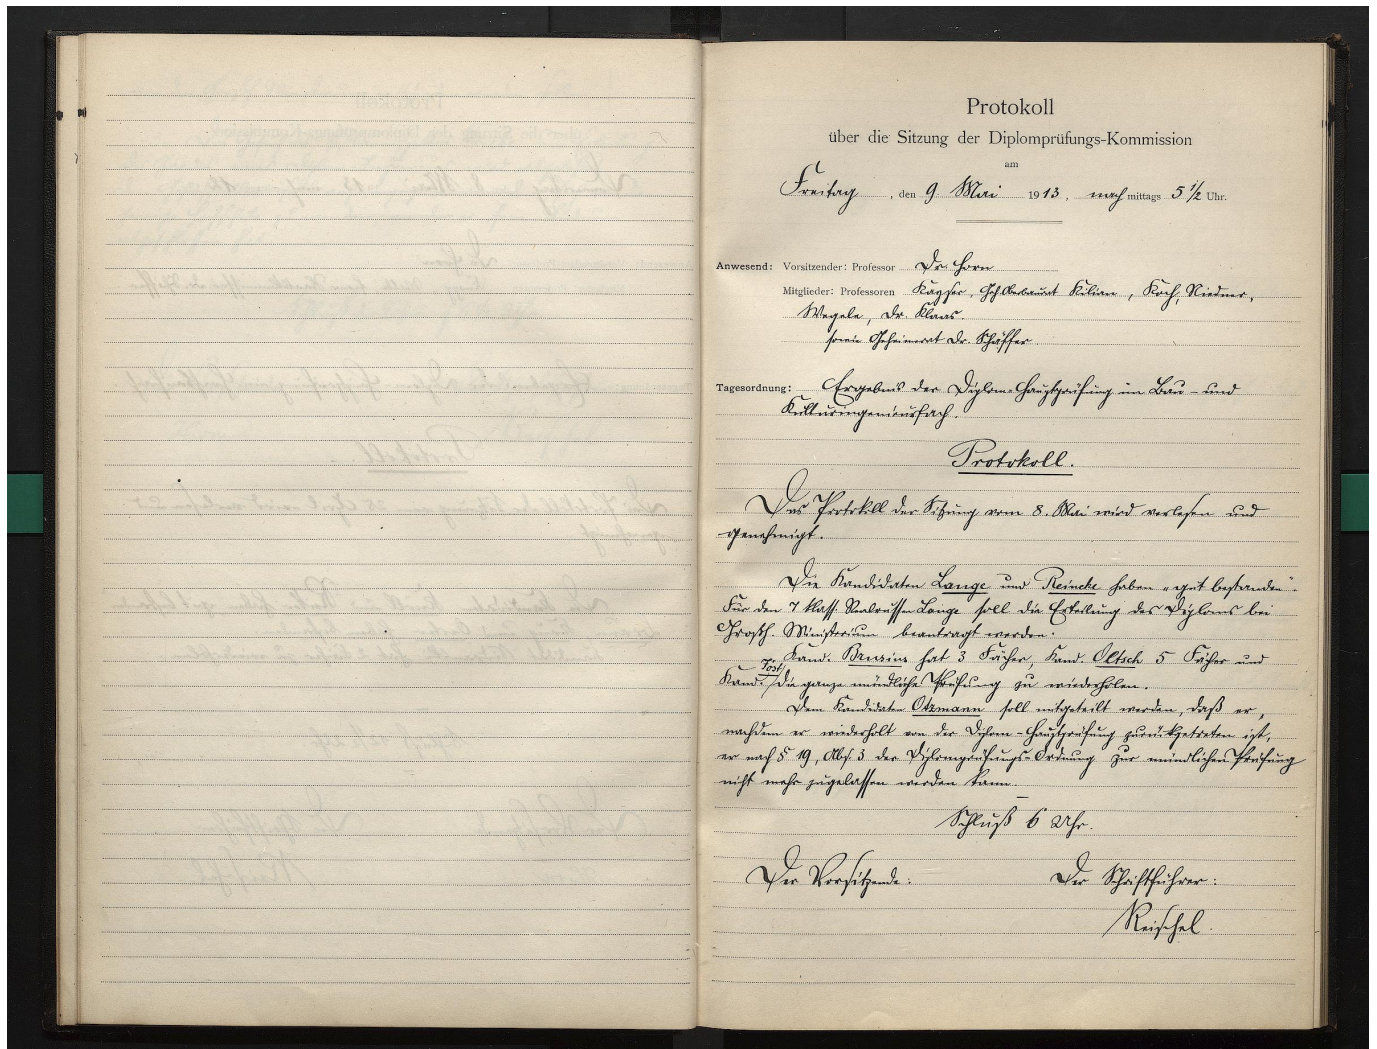 Protokoll
über die Sitzung der Diplomprüfungs-Kommission
am
Freitag, den 9. Mai 1913, nachmittags 5 1/2 Uhr.
Anwesend: Vorsitzender: Professor Dr. Horn
Mitglieder: Professoren Kayser, Geh. Oberbaurat Kilian, Koch, Niedner,
Wegele, Dr. Klaas.
sowie Geheimerat Dr. Schäffer
Tagesordnung: Ergebnis der Diplom-Hauptprüfung im Bau- und
Kulturingenieurfach.
Protokoll.
Das Protokoll der Sitzung vom 8. Mai wird verlesen und
genehmigt.
Die Kandidaten Lange und Reincke haben „gut bestanden".
Für den Lange soll die Erteilung des Diploms bei
Grosh. Ministerium beantragt werden.
Kand. hat 3 Fächer, Kand. Oltsch 5 Fächer und
Kand. Töst die ganze mündliche Prüfung zu wiederholen.
Dem Kandidaten Otzmann soll mitgeteilt werden, daß er,
nachdem er wiederholt von der Diplom-Hauptprüfung zurückgetreten ist,
er nach § 19, Abs. 3 der Diplomprüfungs-Ordnung zur mündlichen Prüfung
nicht mehr zugelassen werden kann.
Schluß 6 Uhr.
Der Vorsitzende: Der Schriftführer:
Reischel.